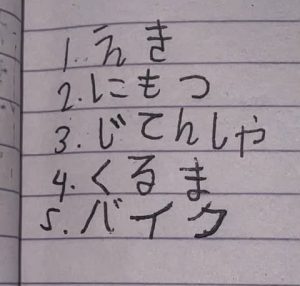 1. えき
2. にもつ
3. じてんしゃ
4. くるま
5. バイク